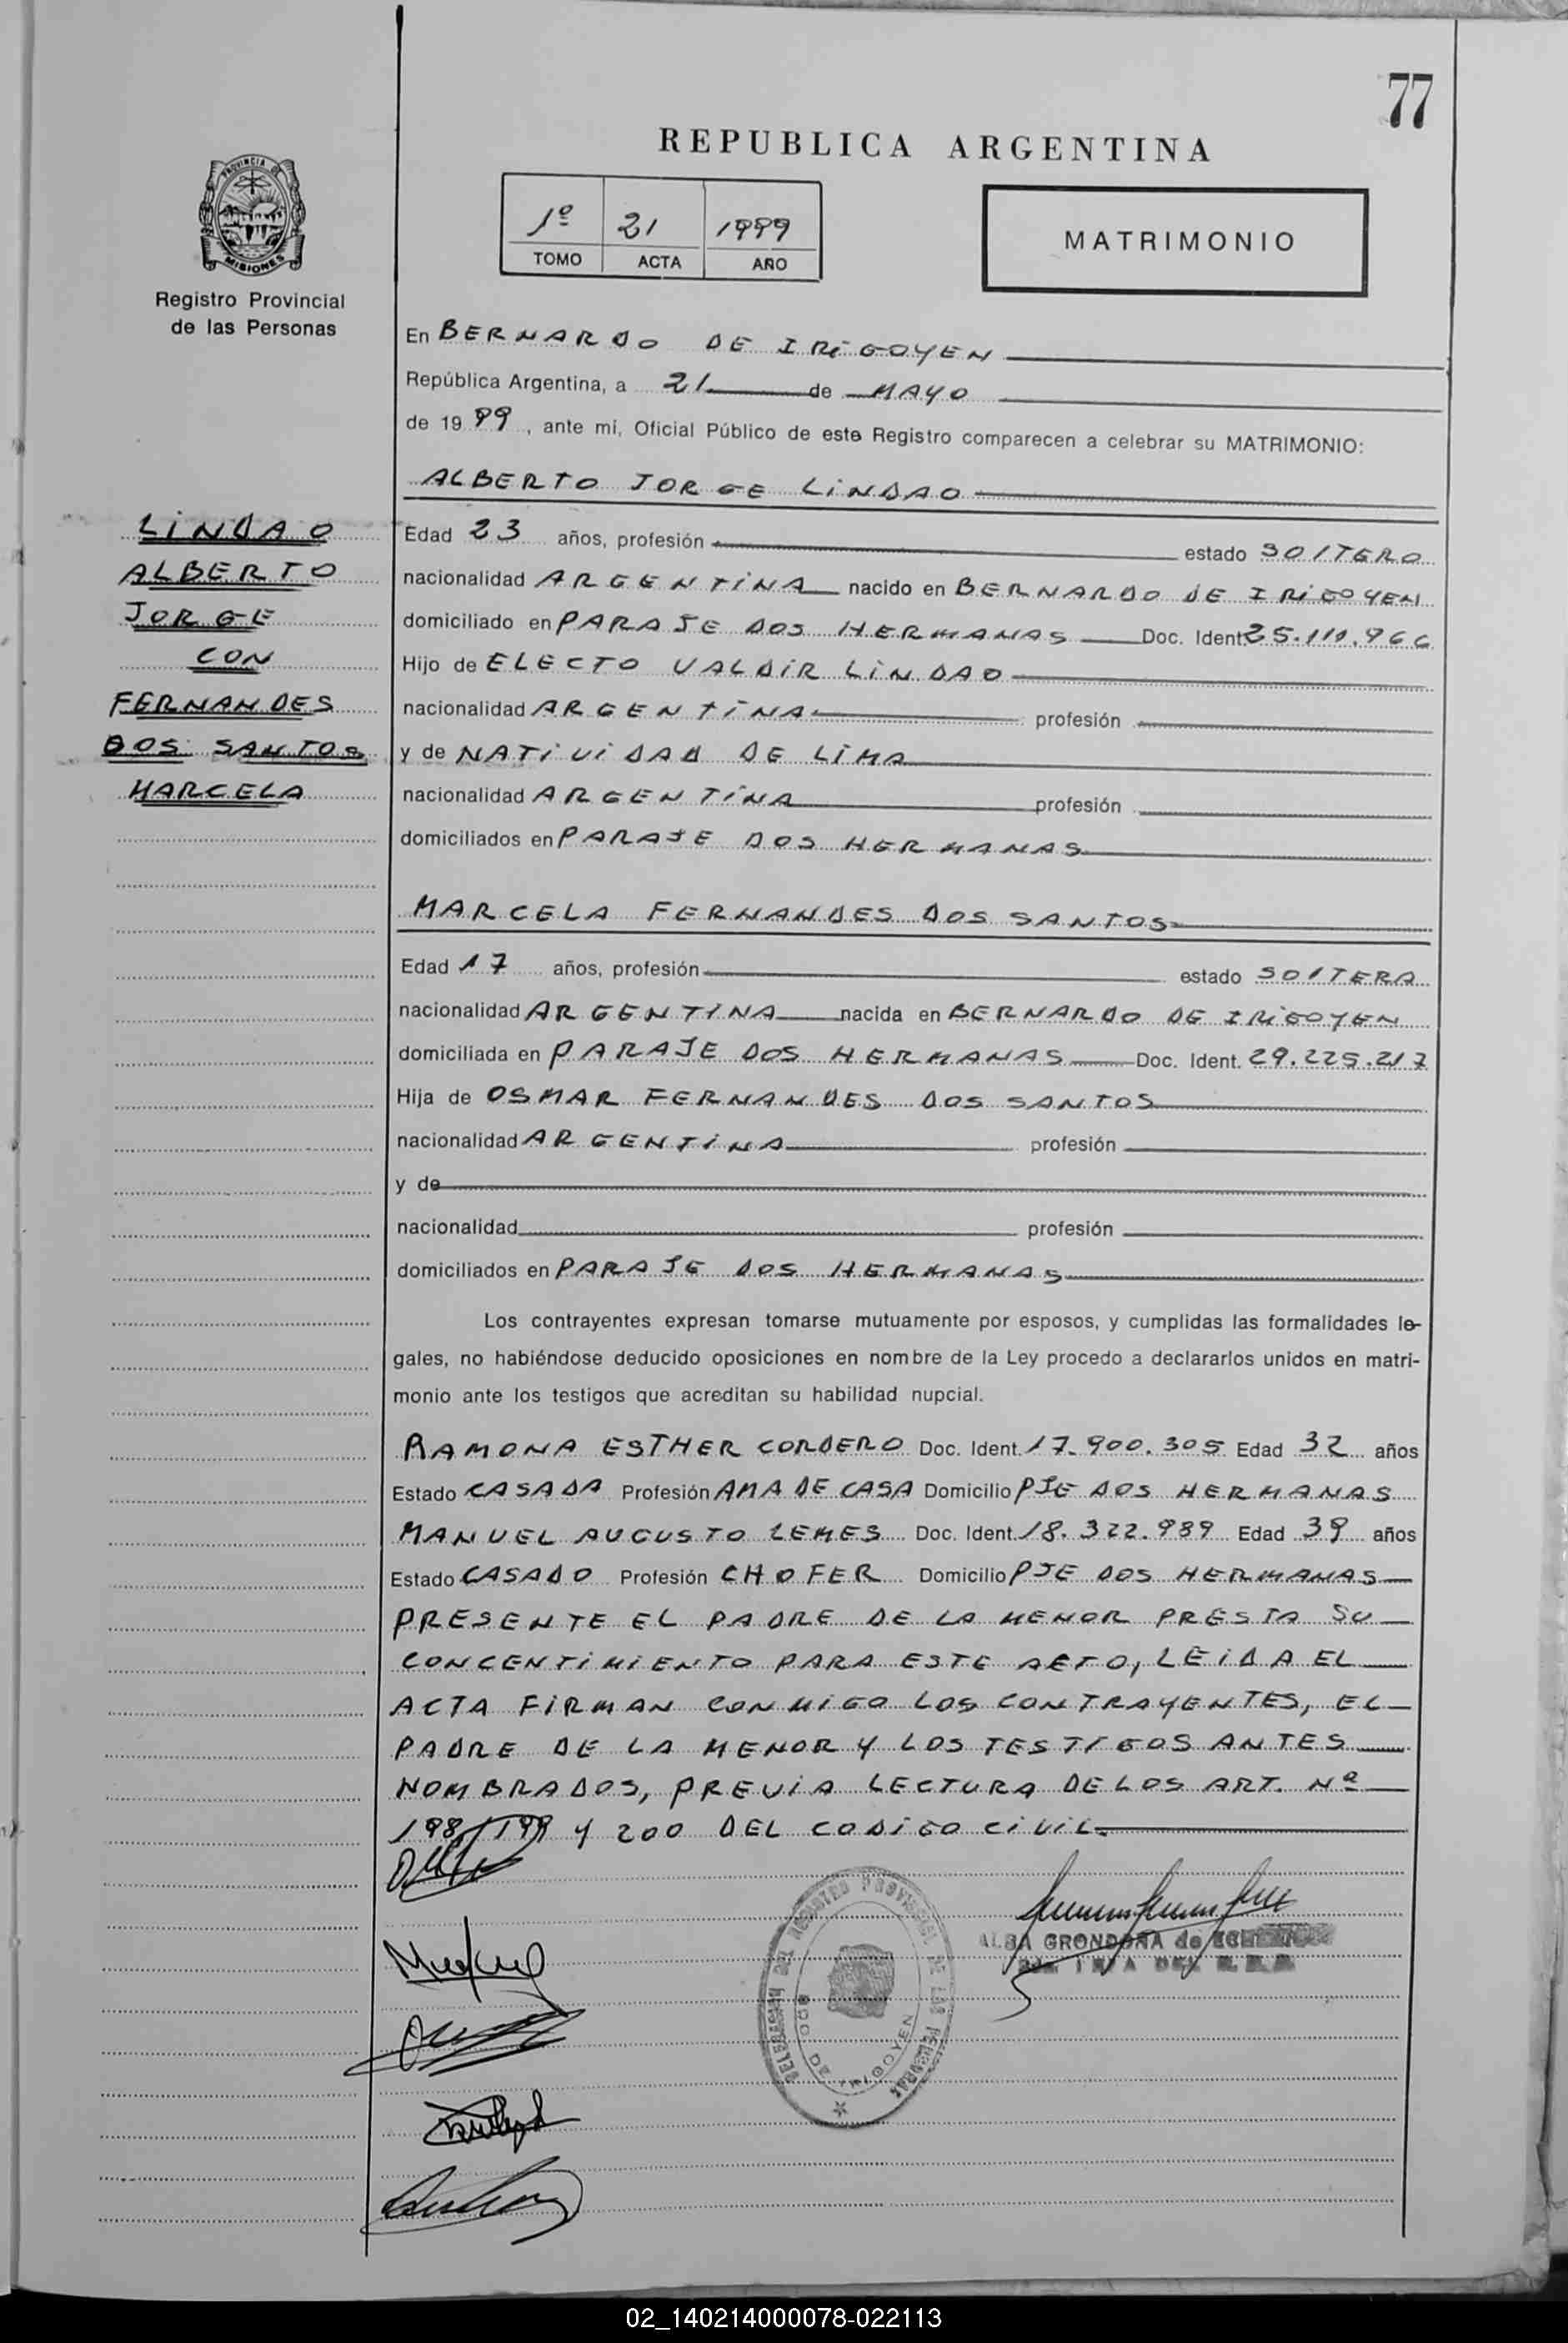 77
REPUBLICA ARGENTINA
1º 21 1999
TOMO ACTA AÑO
MATRIMONIO
PROVINCIA DE
MISIONES
Registro Provincial
de las Personas
En BERNARDO DE IRIGOYEN
República Argentina, a 21 de MAYO
de 1999, ante mí, Oficial Público de este Registro comparecen a celebrar su MATRIMONIO:
ALBERTO JORGE LINDAO
LINDAO
ALBERTO
JORGE
CON
FERNANDES
DOS SANTOS
MARCELA
Edad 23 años, profesión estado SOLTERO
nacionalidad ARGENTINA nacido en BERNARDO DE IRIGOYEN
domiciliado en PARAJE DOS HERMANAS Doc. Ident. 25.111.966
Hijo de ELECTO VALDIR LINDAO
nacionalidad ARGENTINA profesión
y de NATIVIDAD DE LIMA
nacionalidad ARGENTINA profesión
domiciliados en PARAJE DOS HERMANAS
MARCELA FERNANDES DOS SANTOS
Edad 17 años, profesión estado SOLTERA
nacionalidad ARGENTINA nacida en BERNARDO DE IRIGOYEN
domiciliada en PARAJE DOS HERMANAS Doc. Ident. 29.225.217
Hija de OSMAR FERNANDES DOS SANTOS
nacionalidad ARGENTINA profesión
y de
nacionalidad profesión
domiciliados en PARAJE DOS HERMANAS
Los contrayentes expresan tomarse mutuamente por esposos, y cumplidas las formalidades le-
gales, no habiéndose deducido oposiciones en nombre de la Ley procedo a declararlos unidos en matri-
monio ante los testigos que acreditan su habilidad nupcial.
RAMONA ESTHER CORDERO Doc. Ident. 17.900.305 Edad 32 años
Estado CASADA Profesión AMA DE CASA Domicilio PJE DOS HERMANAS
MANUEL AUGUSTO LEMES Doc. Ident. 18.322.989 Edad 39 años
Estado CASADO Profesión CHOFER Domicilio PJE DOS HERMANAS
PRESENTE EL PADRE DE LA MENOR PRESTA SU
CONCENTIMIENTO PARA ESTE ACTO, LEIDA EL
ACTA FIRMAN CONMIGO LOS CONTRAYENTES, EL
PADRE DE LA MENOR Y LOS TESTIGOS ANTES
NOMBRADOS, PREVIA LECTURA DE LOS ART. Nº
198, 199 Y 200 DEL CODIGO CIVIL.
DELEGACION DEL REGISTRO PROVINCIAL DE LAS PERSONAS
BDO DE IRIGOYEN
ALBA GRONDONA de
02_140214000078-022113